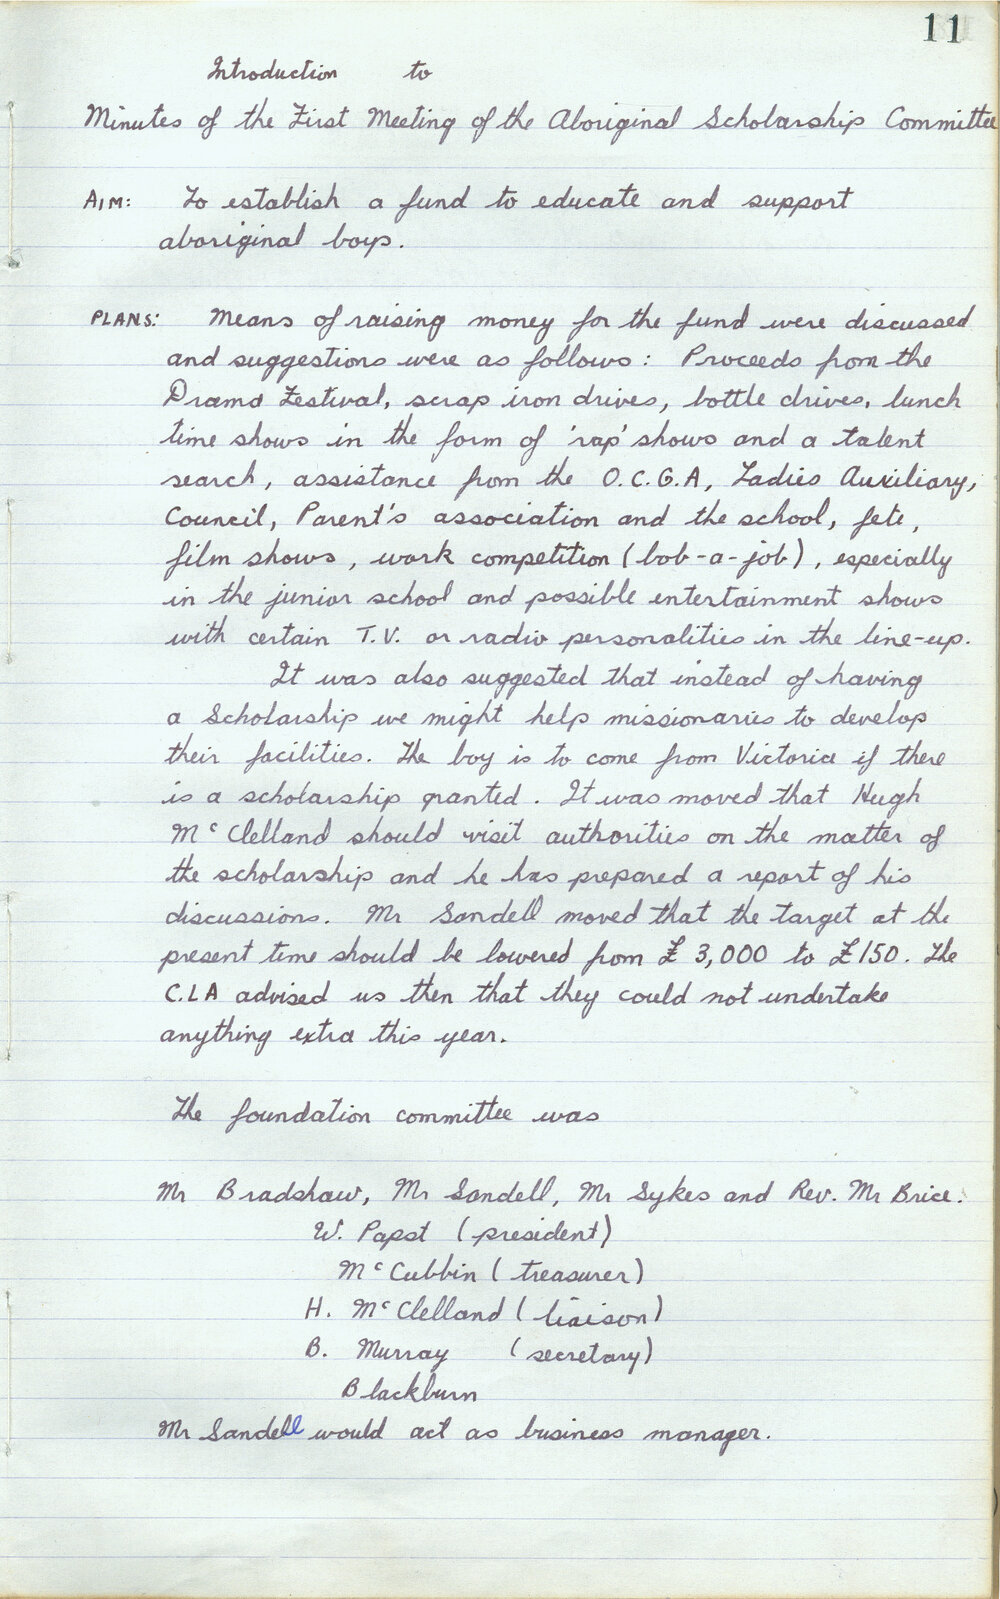 11
Introduction to
Minutes of the First Meeting of the Aboriginal Scholarship Committee
AIM: To establish a fund to educate and support
aboriginal boys.
PLANS: Means of raising money for the fund were discussed
and suggestions were as follows: Proceeds from the
Drama Festival, scrap iron drives, bottle drives, lunch
time shows in the form of 'rap' shows and a talent
search, assistance from the O.C.G.A, Ladies Auxiliary,
Council, Parent's association and the school, fete,
film shows, work competition (bob-a-job), especially
in the junior school and possible entertainment shows
with certain T.V. or radio personalities in the line-up.
It was also suggested that instead of having
a Scholarship we might help missionaries to develop
their facilities. The boy is to come from Victoria if there
is a scholarship granted. It was moved that Hugh
McClelland should visit authorities on the matter of
the scholarship and he has prepared a report of his
discussions. Mr Sandell moved that the target at the
present time should be lowered from £ 3,000 to £150. The
C.L.A advised us then that they could not undertake
anything extra this year.
The foundation committee was
Mr Bradshaw, Mr Sandell, Mr Sykes and Rev. Mr Brice.
W. Papst (president)
McCubbin (treasurer)
H. McClelland (liaison)
B. Murray (secretary)
Blackburn
Mr Sandell would act as business manager.